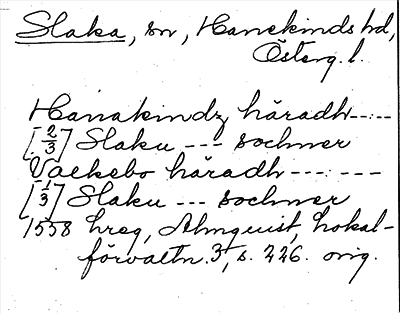 Slaka, sn, Hanekinds hd,
Österg. l.
Hanakindz häradh -----
[2/3] Slaku --- sochner
Valkebo häradh --- ---
[1/3] Slaku --- sochner
1558 hreg, Almquist, Lokal-
förvaltn. 3, s. 226. orig.